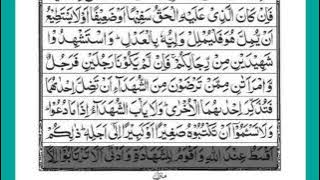 فَاِنْ كَانَ الَّذِیْ عَلَیْهِ الْحَقُّ سَفِیْهًا اَوْ ضَعِیْفًا اَوْ لَا یَسْتَطِیْعُ
اَنْ یُّمِلَّ هُوَ فَلْیُمْلِلْ وَلِیُّهٗ بِالْعَدْلِ ؕ وَاسْتَشْهِدُوْا
شَهِیْدَیْنِ مِنْ رِّجَالِكُمْ ۚ فَاِنْ لَّمْ یَكُوْنَا رَجُلَیْنِ فَرَجُلٌ
وَّامْرَاَتٰنِ مِمَّنْ تَرْضَوْنَ مِنَ الشُّهَدَآءِ اَنْ تَضِلَّ اِحْدٰىهُمَا
فَتُذَكِّرَ اِحْدٰىهُمَا الْاُخْرٰی ؕ وَلَا یَاْبَ الشُّهَدَآءُ اِذَا مَا دُعُوْا ؕ
وَلَا تَسْـَٔمُوْۤا اَنْ تَكْتُبُوْهُ صَغِیْرًا اَوْ كَبِیْرًا اِلٰۤی اَجَلِهٖ ؕ ذٰلِكُمْ
اَقْسَطُ عِنْدَ اللّٰهِ وَاَقْوَمُ لِلشَّهَادَةِ وَاَدْنٰۤی اَلَّا تَرْتَابُوْۤا اِلَّاۤ